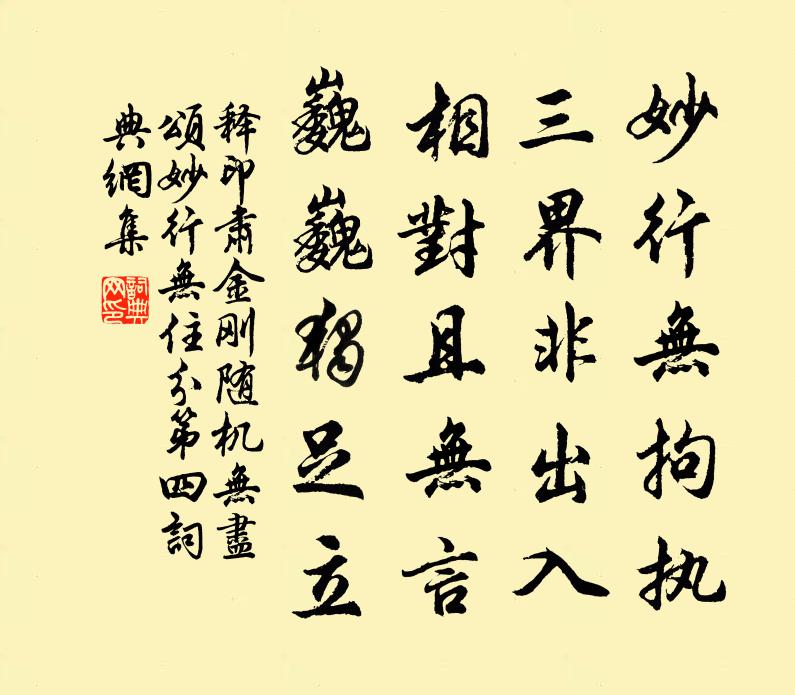 妙行無拘执
三界非出入
相對且無言
巍巍獨足立
释印肅金刚随机無盡
頌妙行無住分第四詞
典網集
詞典
网印